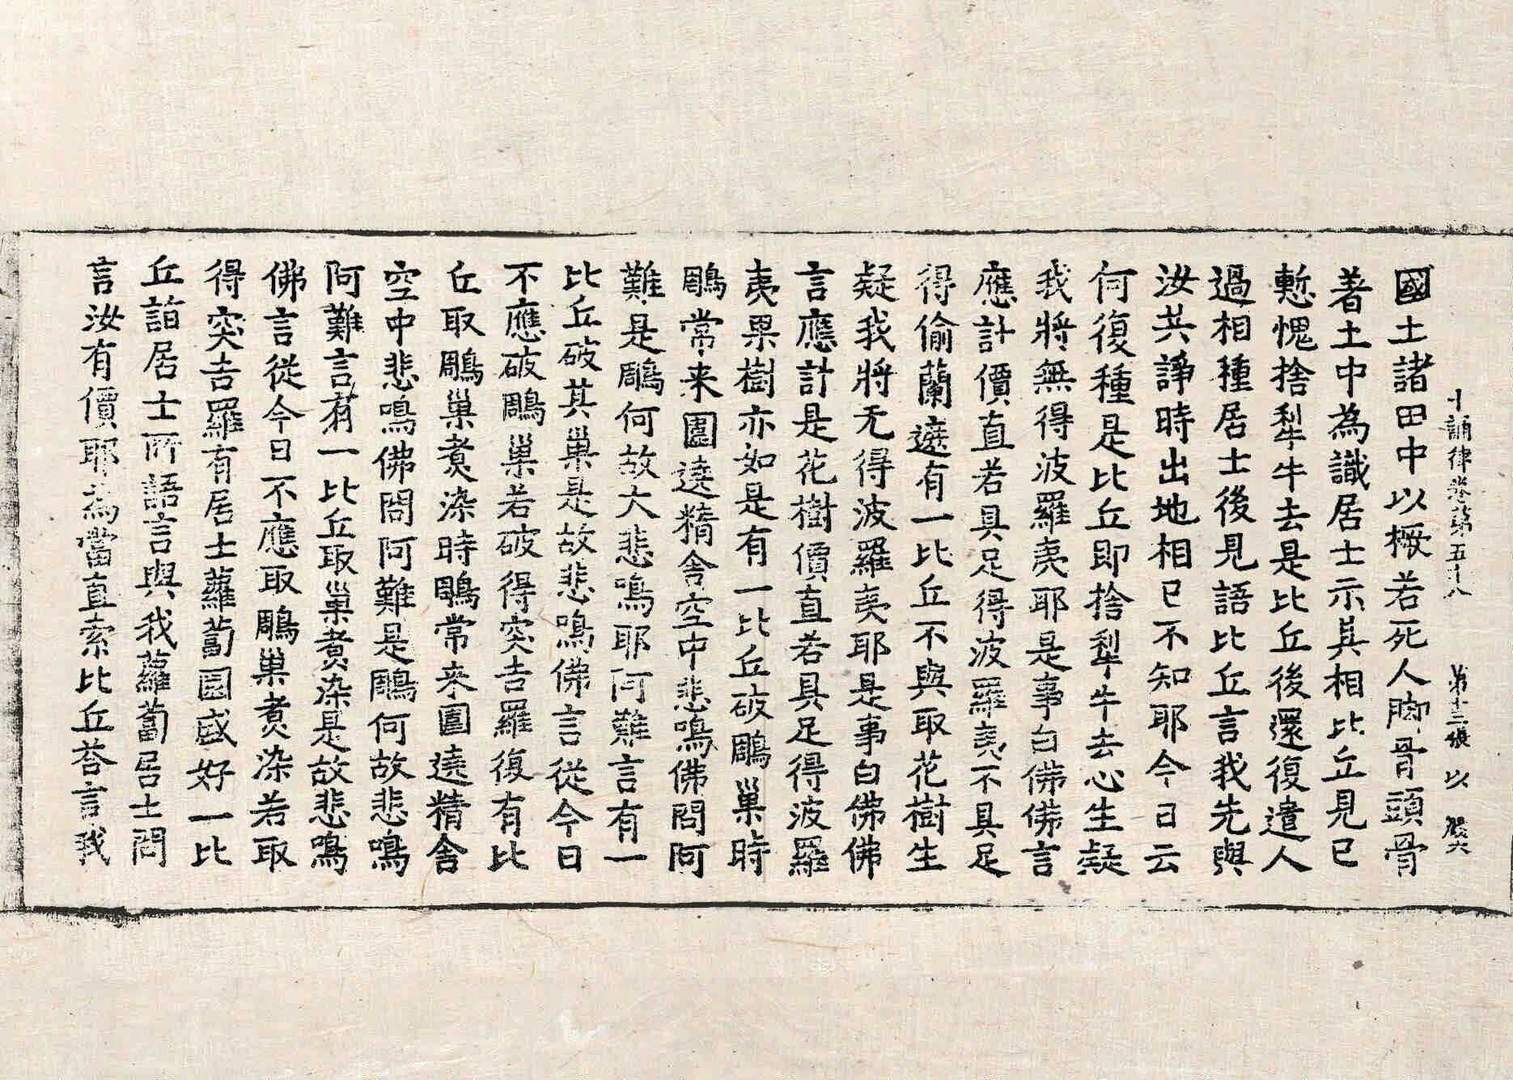 十誦律卷第五十八 第十三張 以
國土諸田中以橛若死人脚骨頭骨
著土中為識居士示其相比丘見已
慙愧捨犁牛去是比丘後還復遣人
過相種居士後見語比丘言我先與
汝共諍時出地相已不知耶今日云
何復種是比丘即捨犁牛去心生疑
我將無得波羅夷耶是事白佛佛言
應計價直若具足得波羅夷不具足
得偷蘭遮有一比丘不與取花樹生
疑我將无得波羅夷耶是事白佛佛
言應計是花樹價直若具足得波羅
夷果樹亦如是有一比丘破鵰巢時
鵰常来圍遶精舍空中悲鳴佛問阿
難是鵰何故大悲鳴耶阿難言有一
比丘破其巢是故悲鳴佛言從今日
不應破鵰巢若破得突吉羅復有比
丘取鵰巢煮染時鵰常来圍遶精舍
空中悲鳴佛問阿難是鵰何故悲鳴
阿難言有一比丘取巢煮染是故悲鳴
佛言從今日不應取鵰巢煮染若取
得突吉羅有居士蘿蔔園盛好一比
丘詣居士所語言與我蘿蔔居士問
言汝有價耶為當直索比丘荅言我